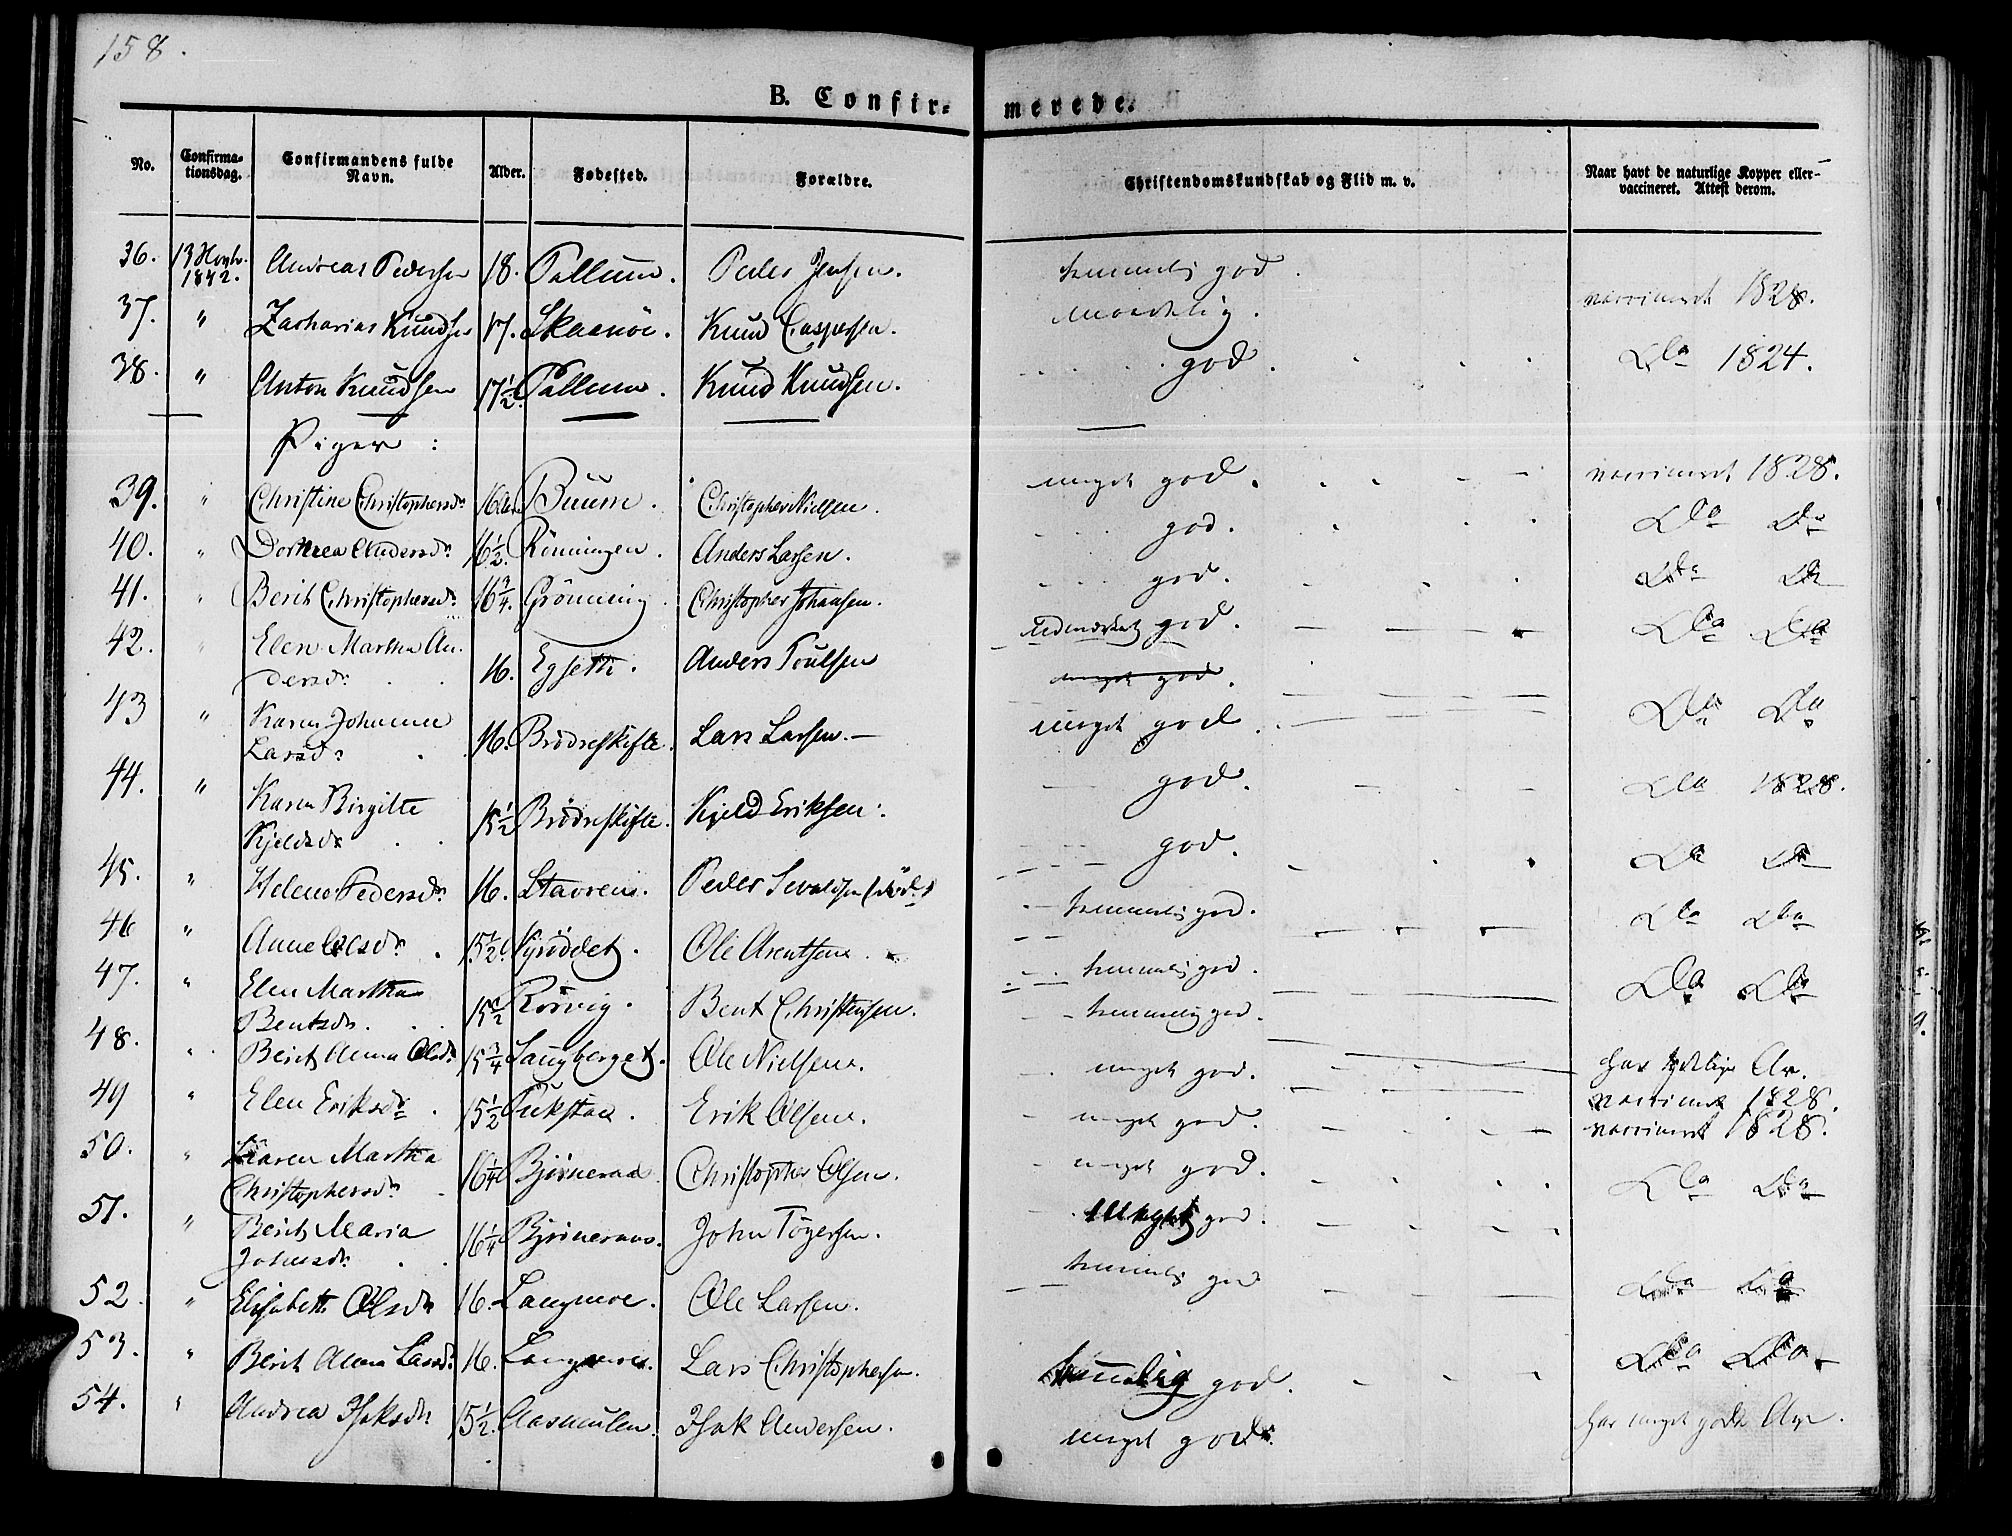 158.
B. Confir-merede.
No. Confirmationsdag. Confirmandens fulde Navn. Alder. Fødested. Forældre. Christendomskundskab og Flid m. v. Naar havt de naturlige Kopper eller vaccineret. Attest derom.
36. 13 Novbr. 1842. Andreas Pedersen 18. Pallum. Peder Jensen. temmelig god. vaccineret 1828.
37. " Zacharias Knudsen 17. Skaanöe. Knud Caspersen. maadelig.
38. " Anton Knudsen 17½ Pallum. Knud Knudsen. god. Do 1824.
Piger:
39. " Christine Christophersdr. Buum. Christopher Nielsen. meget god. vaccineret 1828.
40. " Dorthea Andersdr. 16½ Rönningen. Anders Larsen. god. Do Do
41. " Berit Christophersdr. 16¾. Grönning. Christopher Johansen. god. Do Do
42. " Elen Martha Andersdr. 16. Egseth. Anders Poulsen udmærket god. Do Do
meget god.
43 " Karen Johanne Larsdr. 16. Brödreskifte. Lars Larsen. meget god. Do Do
44. " Karen Birgitte Kjeldsdr 15½ Brödreskifte. Kjeld Eriksen. god. Do 1828.
45. " Helene Pedersdr. 16. Stavren. Peder Sivaldsen (död) god. Do Do
46 " Anne Olsdr. 15½ Ole Arentsen. temmelig god. Do Do
47. " Elen Martha Bentsdr. 15½ Rörvig. Bent Christensen. temmelig god. Do Do
48. " Berit Anna Olsdr. 15¾ Langberget. Ole Nielsen. temmelig god. har tydlige Ar.
49 " Elen Eriksdr. 15½ Erik Olsen. meget god. vaccineret 1828.
50. " Karen Martha Christophersdr. 16¼ Björneraa Christopher Olsen. meget god. vaccineret 1828.
51. " Berit Maria Johnsdr. 16¼ Björneraas. John Tögersen. meget god. Do Do
52. " Elisabeth Olsdr 16. Langmoe. Ole Larsen. meget god.
53. " Berit Anna Larsdr. 16. Langmoe. Lars Christophersen. temmelig god Do Do
54. " Andrea Isaksdr 15½. Aasmulen. Isak Andersen. temmelig god. Do Do
meget god. har meget gode Ar.